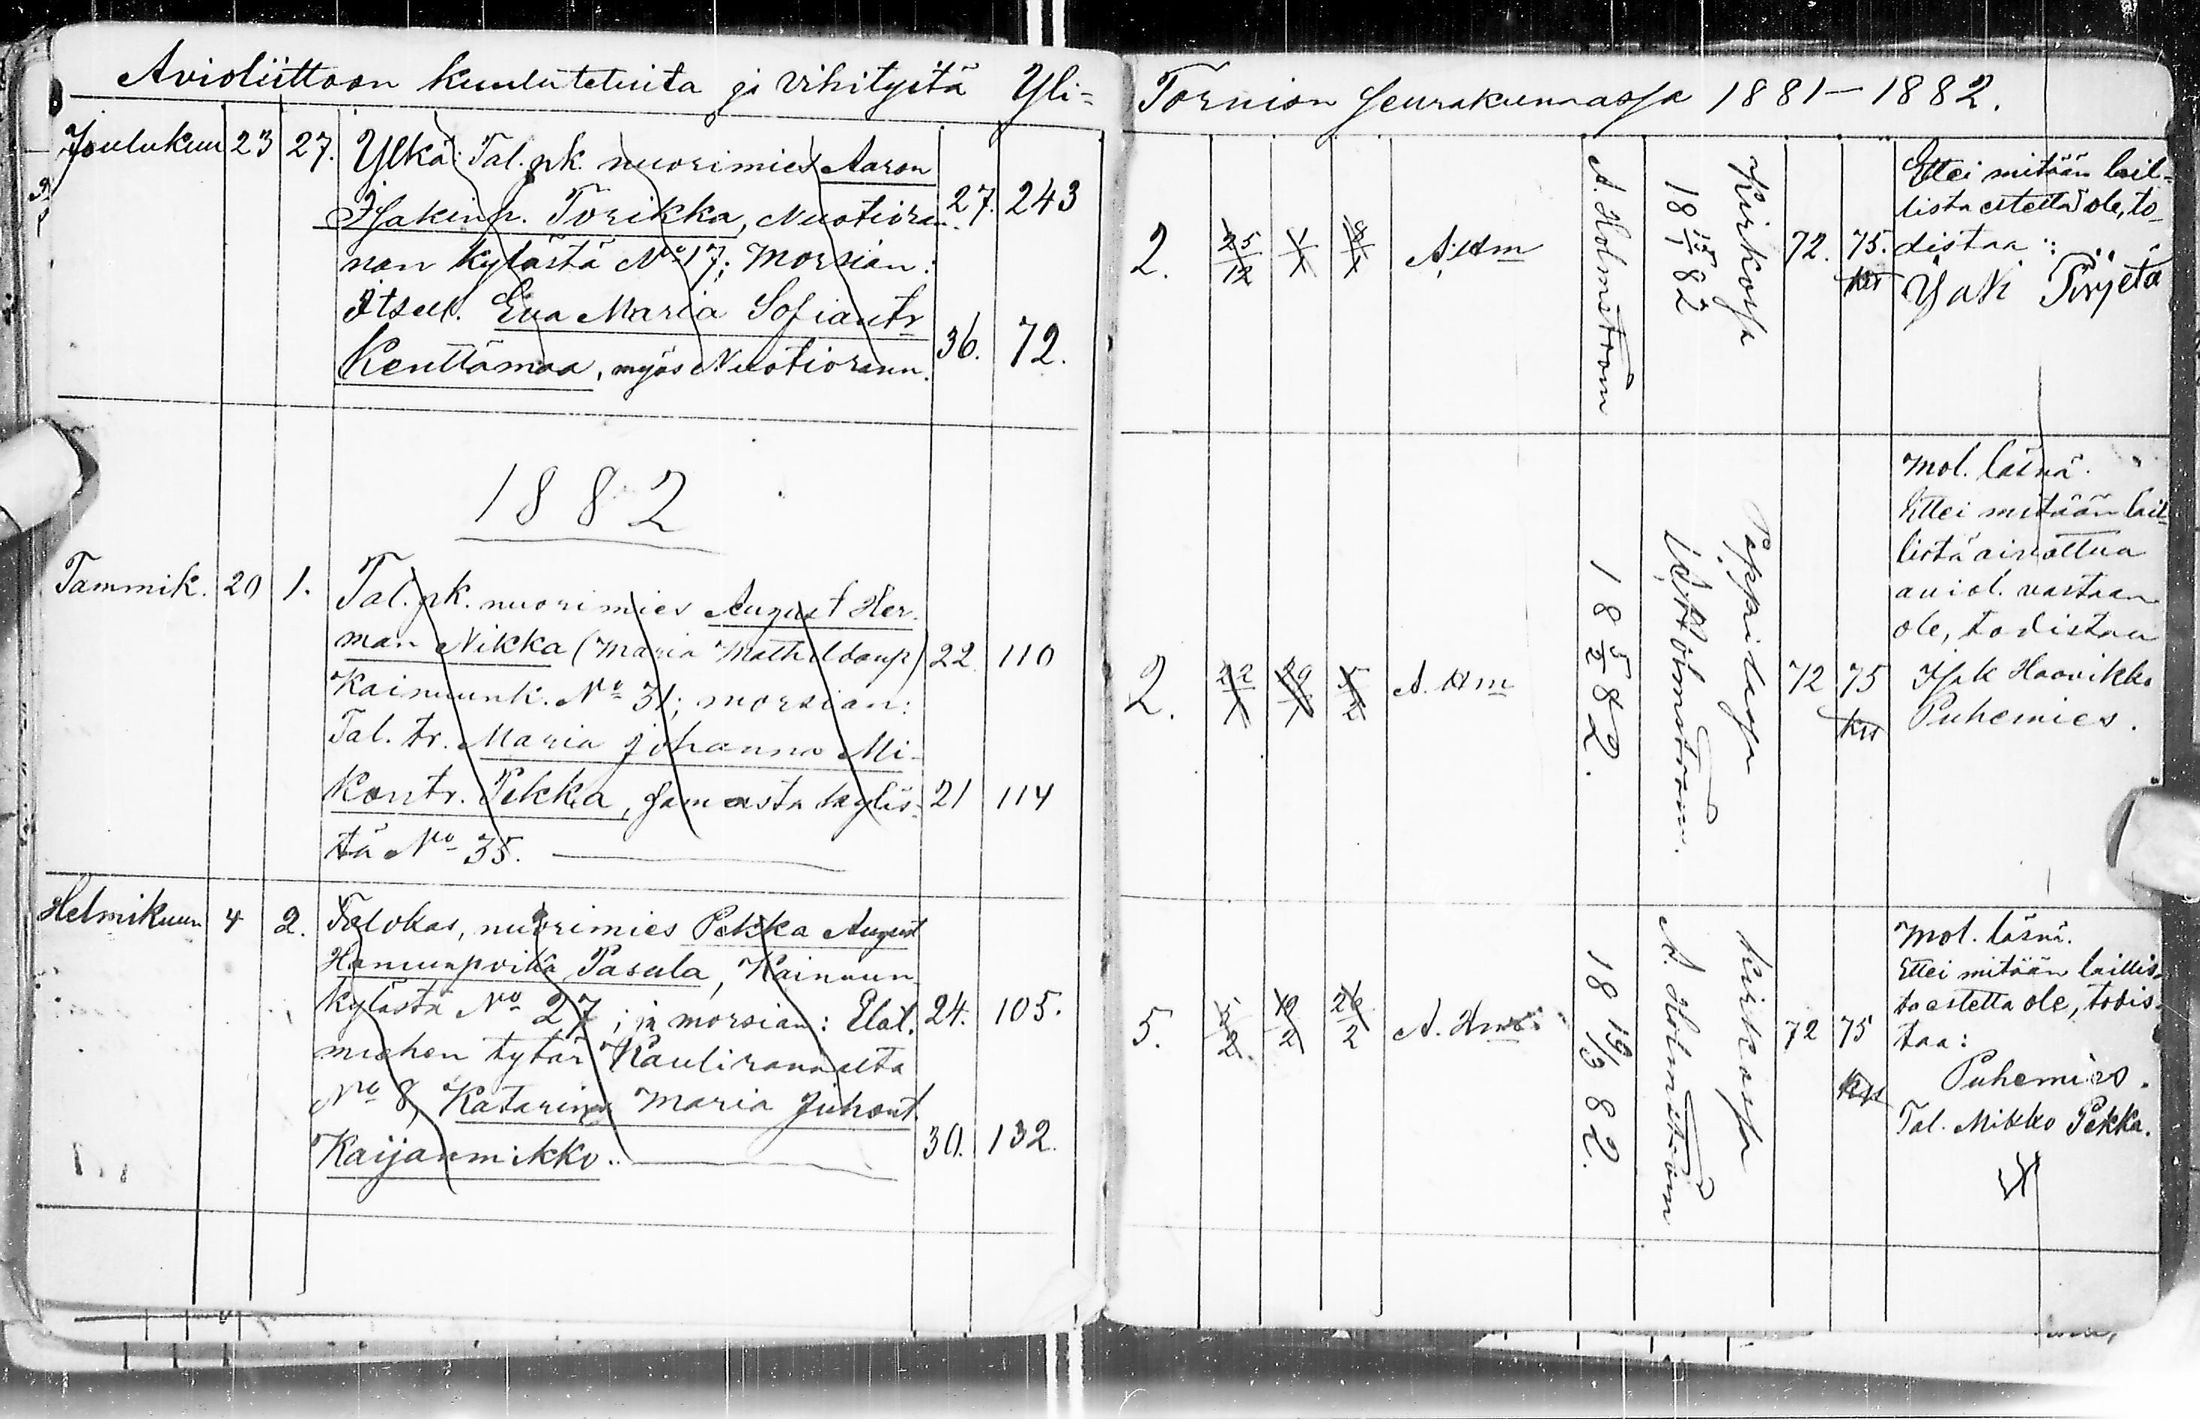 Avioliittoon kuulutetuita ja vihityitä Yli-
Joulukuu 23 27. Ylkä: Tal. pk. nuorimies Aaron
Isakinp. Torikka, Nuotioran- 27. 243
nan kylästä No 17; Morsian:
Itsell. Eva Maria Sofiantr
Kenttämaa, myös Nuotiorann. 36. 72.
1882
Tammik. 20 1. Tal. pk. nuorimies August Her-
man Nikka (Maria Mathildanp) 22 110
Kainuunk. No 31; morsian:
Tal. tr. Maria Johanna Mi-
kontr. Pekka, samasta kyläs- 21 114
tä No 35.
Helmikuun 4 2. Talokas, nuorimies Pekka August
Hannunpoika Pasula, Kainuun
kylästä No 27; ja morsian: Elat. 24. 105.
miehen tytär Kaulirannalta
No 8, Katarina Maria Juhont.
Kaijanmikko. 30. 132.
Tornion seurakunnassa 1881-1882.
2. 25/12 1/1 A. Hm
A. Holmström
18 15/1 82
Kirkossa
72. 75.
Ettei mitään lail-
lista estettä ole, to-
distaa:
2. 22/1 29/1 5/2 A. Hm
18 5/2 82.
A. Holmström.
Pappilassa
72 75
Mol. läsnä.
Ettei mitään lail-
lista
aviol. vastaan
ole, todistaa
Isak Haavikko
Puhemies.
5. 12/2 19/2 26/2 A. Hm
18 19/3 82.
A. Holmström
Kirkossa
72 75
Mol. läsnä.
Ettei mitään laillis-
ta estettä ole, todis-
taa:
Puhemies.
Tal. Mikko Pekka.